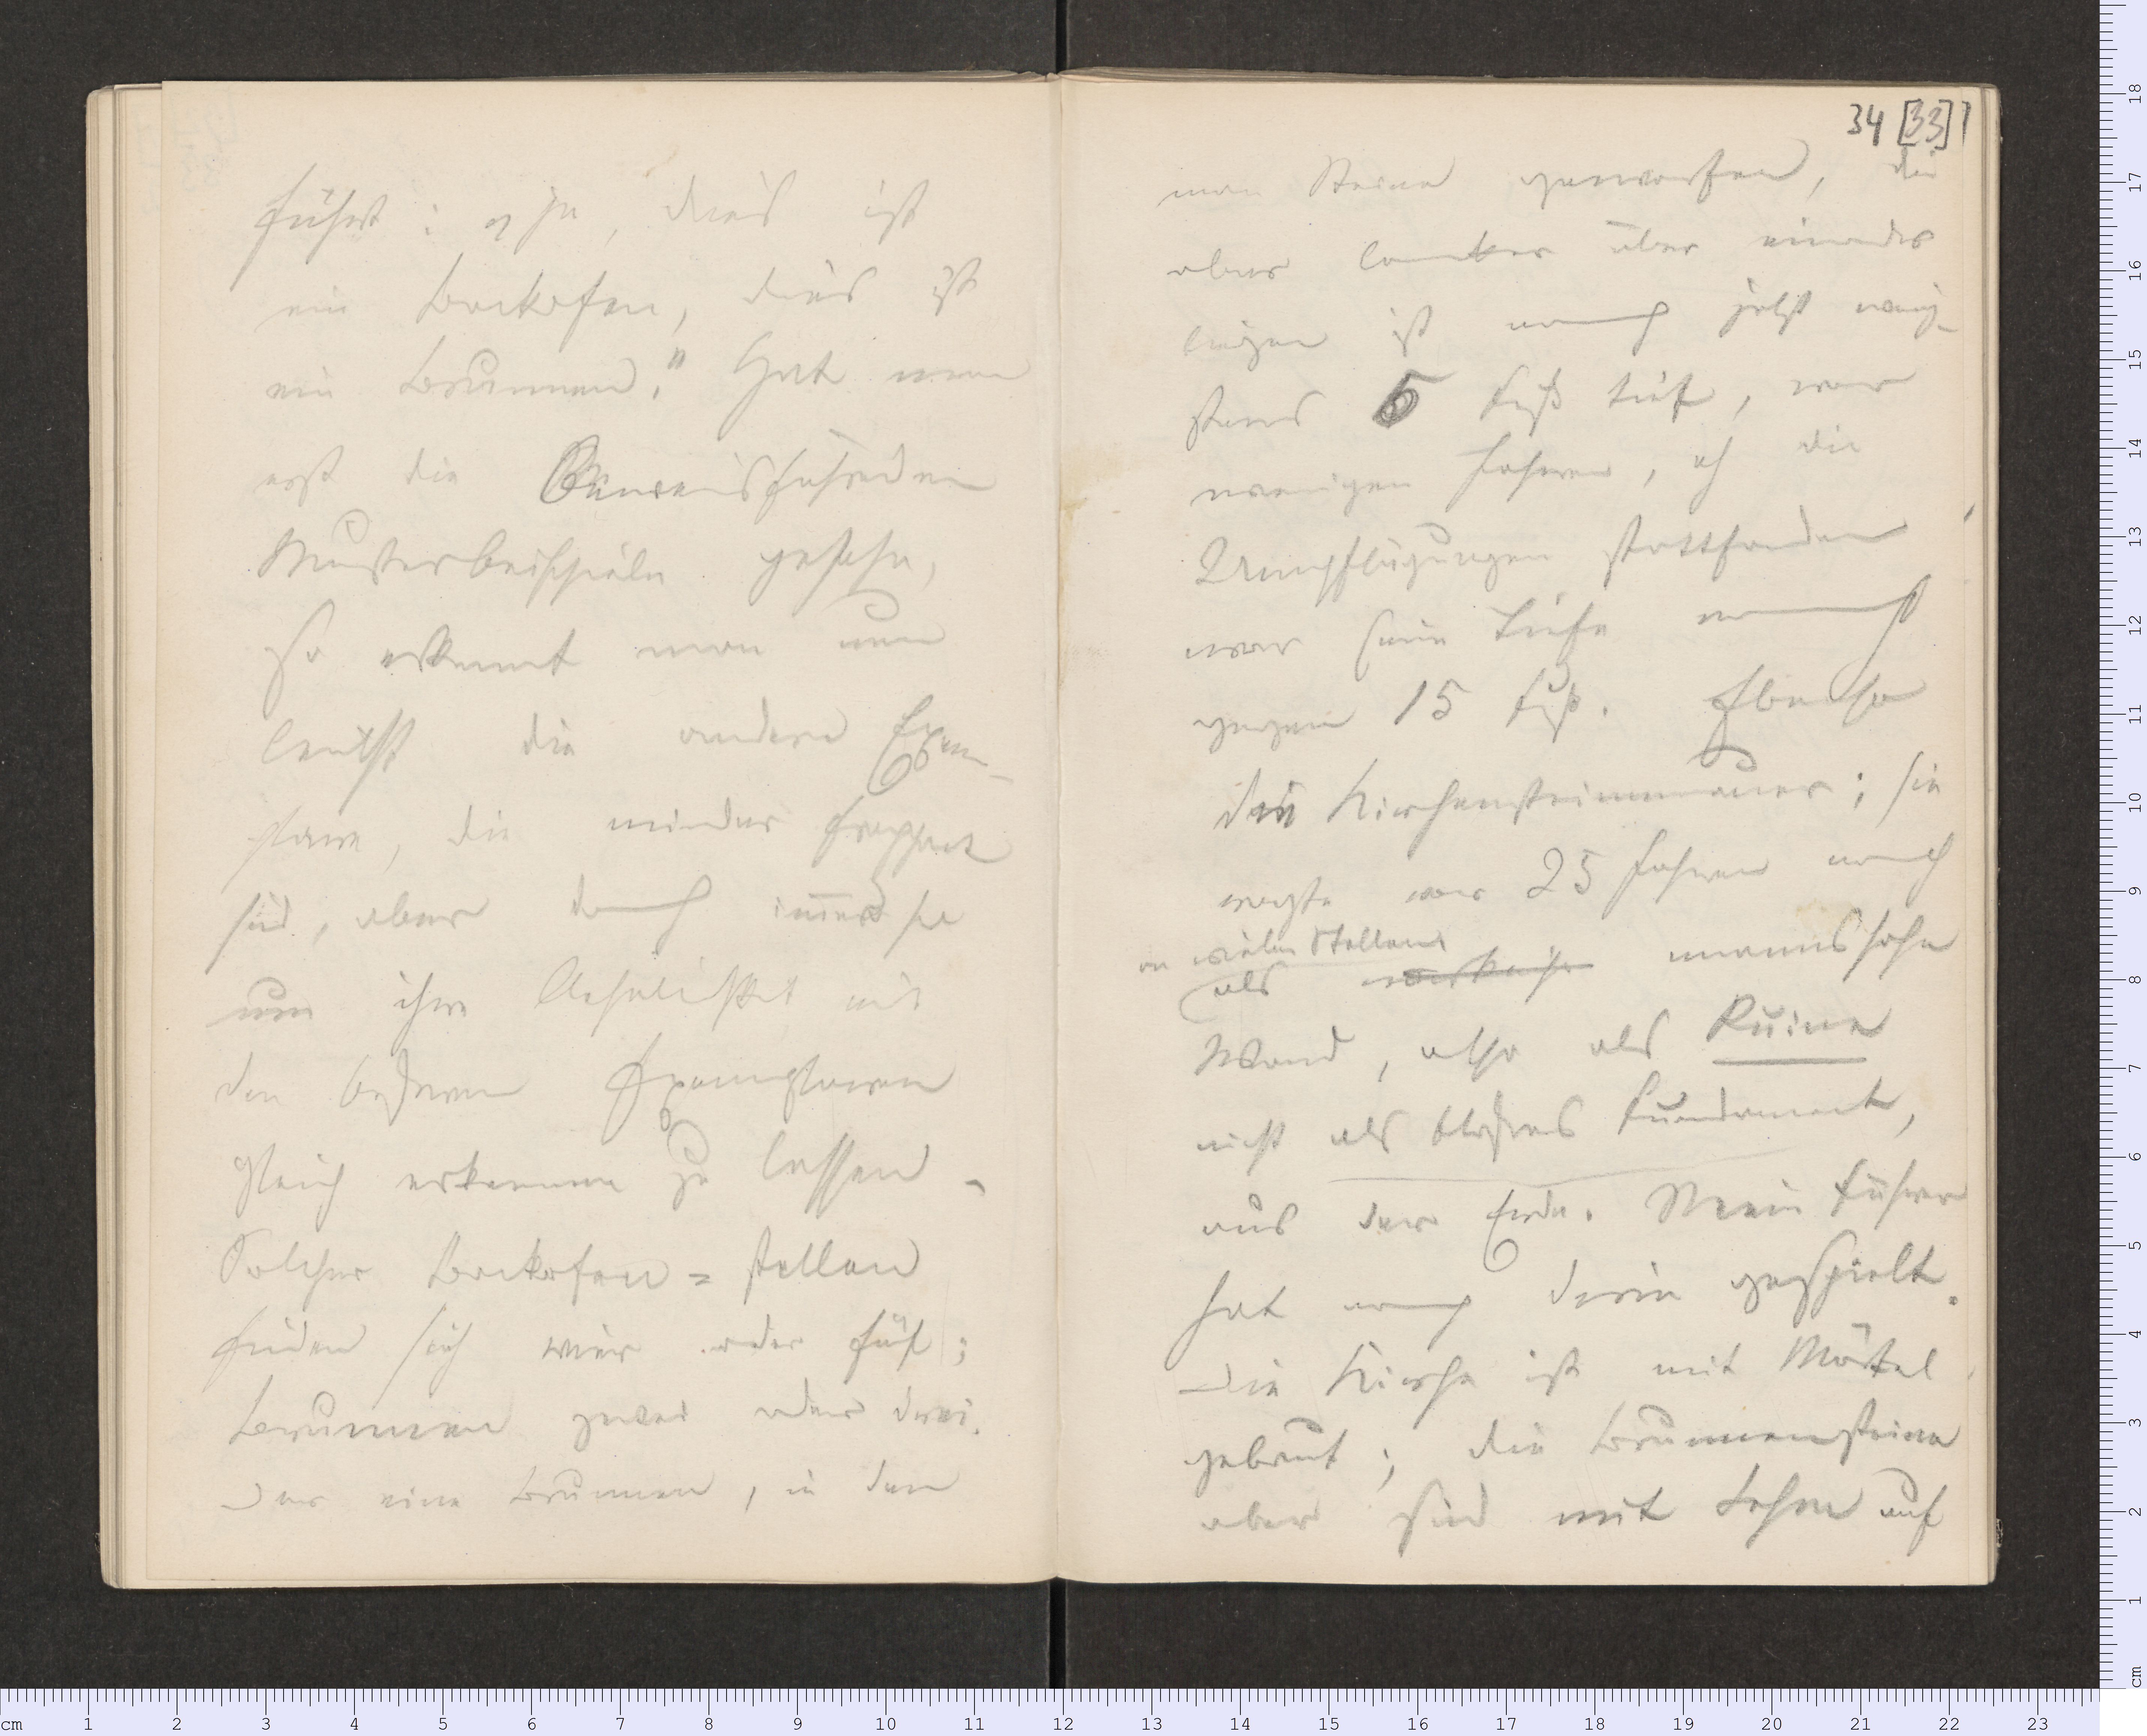 führt: „ja, dies ist
ein Backofen, dies ist
ein Brunnen." Hat man
erst die Beweisführenden
Musterbeispiele gesehn,
so erkennt man nun
leicht die andern Exem-
plare, die minder frappant
sind, aber doch immer
um ihre Aehnlichkeit mit
den besseren Exemplaren
gleich erkennen zu lassen.
Solcher Backofen=stellen
finden sich vier oder fünf;
Brunnen zwei oder drei.
Der eine Brunnen, in den
34 [33]
man Steine geworfen, die
aber locker über einander
liegen ist noch jetzt wenig-
stens 5 Fuß tief, vor
wenigen Jahren, eh die
Umpflügungen stattfanden
war seine Tiefe
gegen 15 Fuß. Ebenso
die Kirchensteinmauer; sie
ragte vor 25 Jahren noch
an vielen Stellen
als mannshohe
Wand, also als Ruine
nicht als bloßes Fundament,
aus der Erde. Mein Führer
hat noch darin gespielt.
Die Kirche ist mit Mörtel
gebaut; die Brunnensteine
aber sind mit Lehm auf